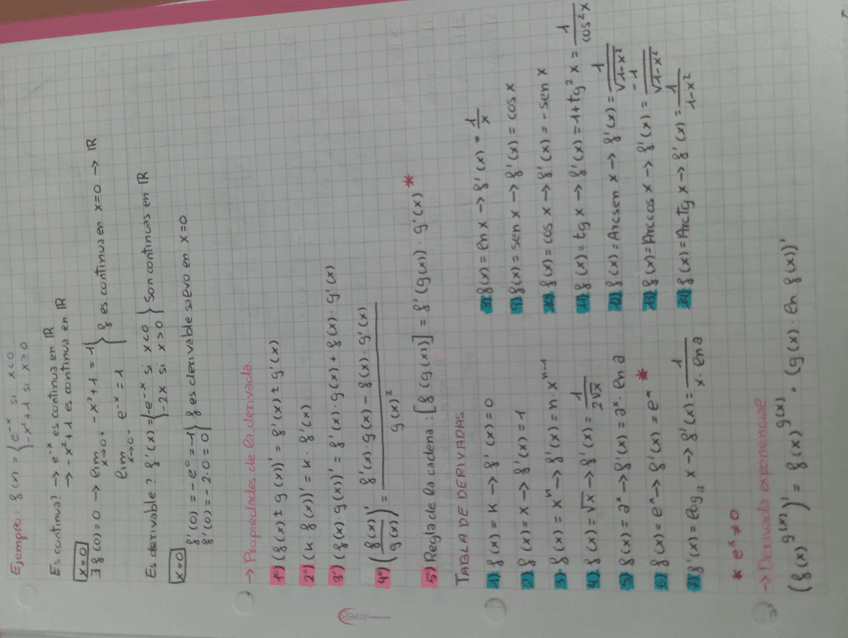 Ejemplo: f(x) = { e^-x si x<0
-x²+1 si x≥0
Es continua? → e^-x es continua en ℝ
→ -x²+1 es continua en ℝ
x=0
∃ f(0)=0 → lim x→0+ -x²+1 = 1 } f es continua en x=0 → ℝ
lim x→0- e^-x = 1
Es derivable? f'(x) = { -e^-x si x<0 } Son continuas en ℝ
-2x si x>0
x=0
f'(0) = -e^0 = -1 } f es derivable salvo en x=0
f'(0) = -2·0 = 0
→ Propiedades de la derivada
1º) (f(x) ± g(x))' = f'(x) ± g'(x)
2º) (k f(x))' = k · f'(x)
3º) (f(x) · g(x))' = f'(x) · g(x) + f(x) · g'(x)
4º) (f(x)/g(x))' = f'(x) · g(x) - f(x) · g'(x) / g(x)²
5º) Regla de la cadena: [f(g(x))] = f'(g(x)) · g'(x) *
TABLA DE DERIVADAS
1) f(x) = k → f'(x) = 0
2) f(x) = x → f'(x) = 1
3) f(x) = x^n → f'(x) = n·x^n-1
4) f(x) = √x → f'(x) = 1/2√x
5) f(x) = a^x → f'(x) = a^x · ln a
6) f(x) = e^x → f'(x) = e^x *
7) f'(x) = log_a x → f'(x) = 1/x · ln a
8) f(x) = ln x → f'(x) = 1/x
9) f(x) = sen x → f'(x) = cos x
10) f(x) = cos x → f'(x) = - sen x
11) f(x) = tg x → f'(x) = 1+tg² x = 1/cos² x
12) f(x) = Arcsen x → f'(x) = 1/√1-x²
13) f(x) = Arccos x → f'(x) = -1/√1-x²
14) f(x) = Arctg x → f'(x) = 1/1-x²
* e^x ≠ 0
→ Derivada exponencial
(f(x)^g(x))' = f(x)^g(x) · (g(x) · ln f(x))'